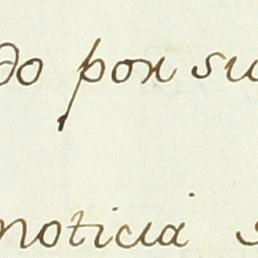 do por su
noticia s